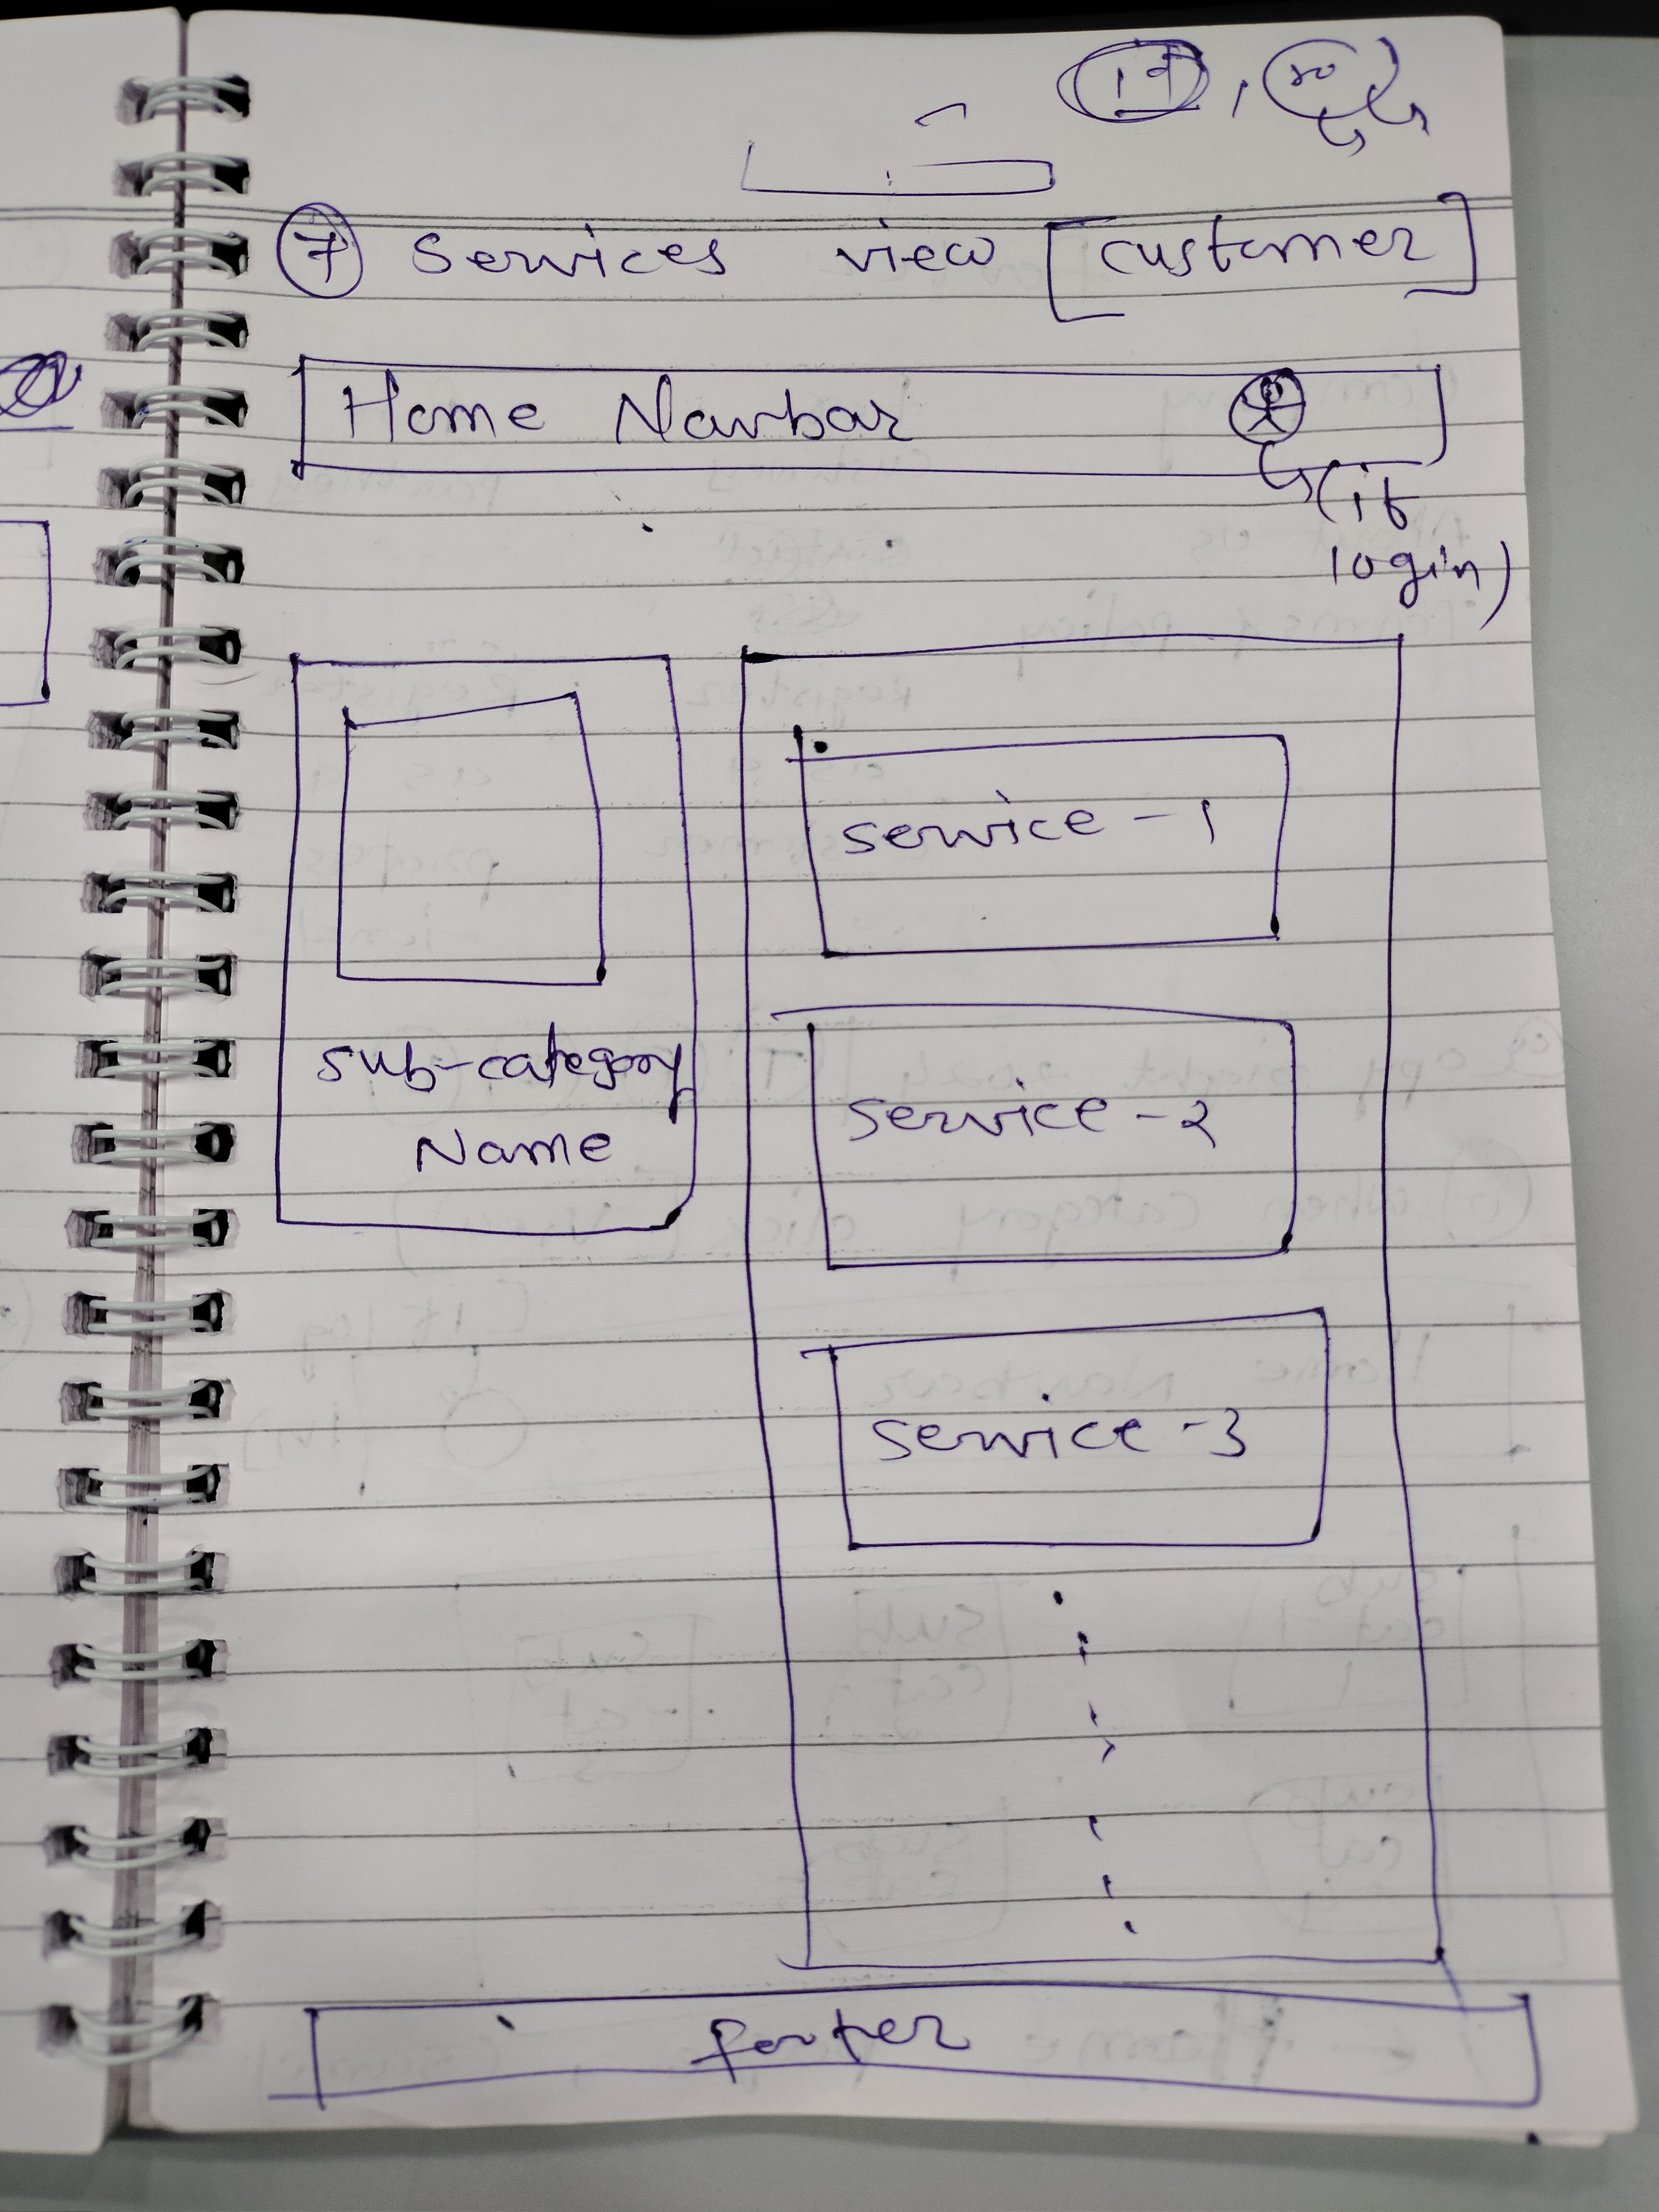 7 Services view [customer]
Home Navbar
(if
login)
sub-category
Name
service-1
service-2
service-3
footer